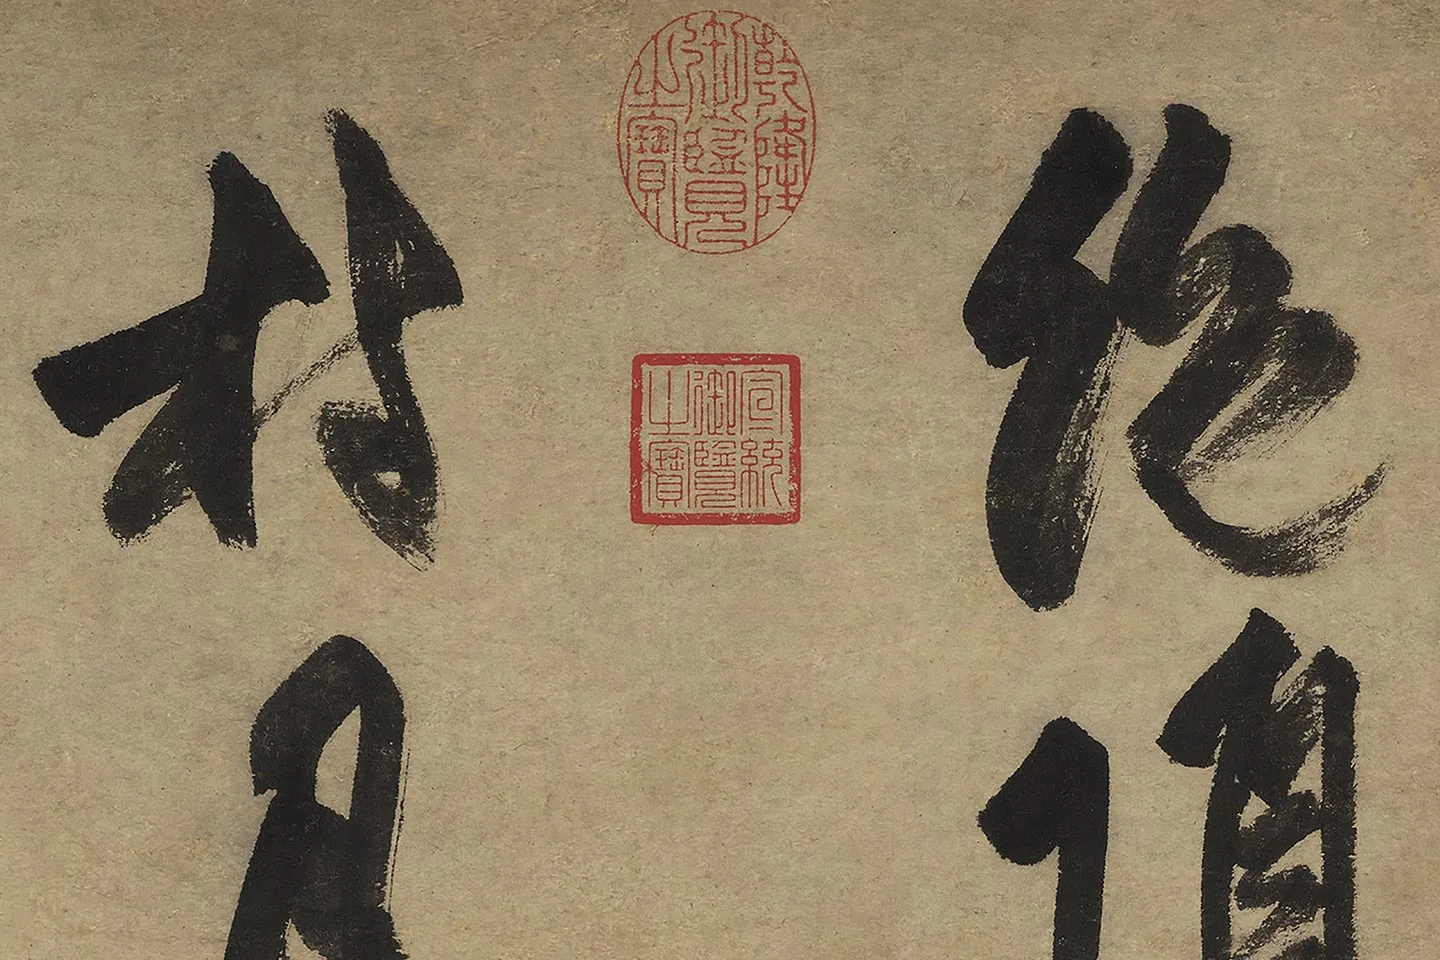 絕頂
乾隆
御覽
之寶
宣統
御覽
之寶
村月